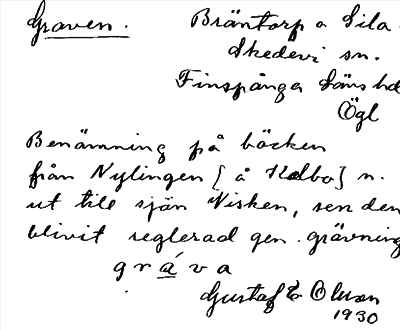 Graven.
Bräntorp o Sila
Skedevi sn.
Finspånga läns hd
Ögl
Benämning på bäcken
från Nylingen [å Kolbo] n.
ut till sjön Visken, sen den
blivit reglerad gen. grävning
gráva
Gustaf E Olsson
1930